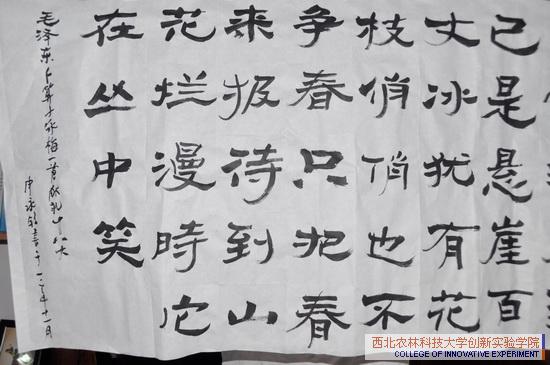 已是悬崖百
丈冰犹有花
枝俏俏也不
争春只把春
来报待到山
花烂漫時它
在丛中笑
毛泽东卜算子咏梅一首献礼十八大
书于一二年十一月
西北农林科技大学创新实验学院
COLLEGE OF INNOVATIVE EXPERIMENT